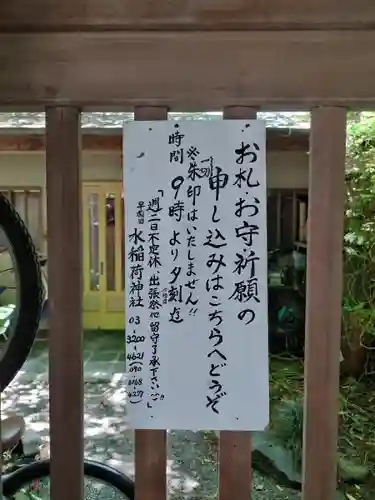 お札お守祈願の
申し込みはこちらへどうぞ
※朱印は一切いたしません!!
時間 9時より夕刻迄
「週二日不定休、出張祭他留守了承下さい」
早稲田 水稲荷神社 03-3200-4621